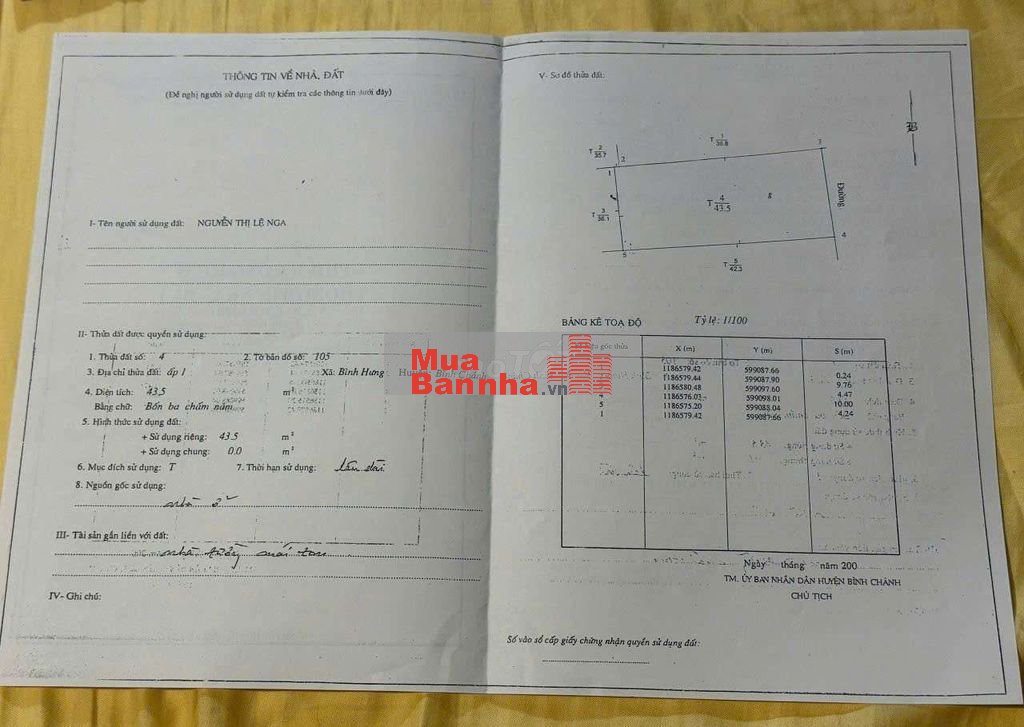 THÔNG TIN VỀ NHÀ, ĐẤT
(Đề nghị người sử dụng đất tự kiểm tra các thông tin dưới đây)
I- Tên người sử dụng đất: NGUYỄN THỊ LỆ NGA
II- Thửa đất được quyền sử dụng:
1. Thửa đất số: 4 2. Tờ bản đồ số: 105
3. Địa chỉ thửa đất: ấp 1 Xã: Bình Hưng Huyện: Bình Chánh
4. Diện tích: 43.5 m²
Bằng chữ: Bốn ba chấm năm
5. Hình thức sử dụng đất:
+ Sử dụng riêng: 43.5 m²
+ Sử dụng chung: 0.0 m²
6. Mục đích sử dụng: T 7. Thời hạn sử dụng: lâu dài
8. Nguồn gốc sử dụng:
nhà ở
III- Tài sản gắn liền với đất:
nhà tường mái ton
IV- Ghi chú:
V- Sơ đồ thửa đất:
B
T 2/35.7
2
T 1/36.8
3
1
T 3/36.1
T 4/43.5
8
Đường
5
T 5/42.3
4
BẢNG KÊ TOẠ ĐỘ Tỷ lệ: 1/100
X (m) Y (m) S (m)
1186579.42 599087.66
0.24
1186579.44 599087.90
9.76
1186580.48 599097.60
4.47
4 1186576.03 599098.01
10.00
5 1186575.20 599088.04
4.24
1 1186579.42 599087.66
Mua
Bannha.vn
Ngày tháng năm 200
TM. ỦY BAN NHÂN DÂN HUYỆN BÌNH CHÁNH
CHỦ TỊCH
Số vào sổ cấp giấy chứng nhận quyền sử dụng đất: